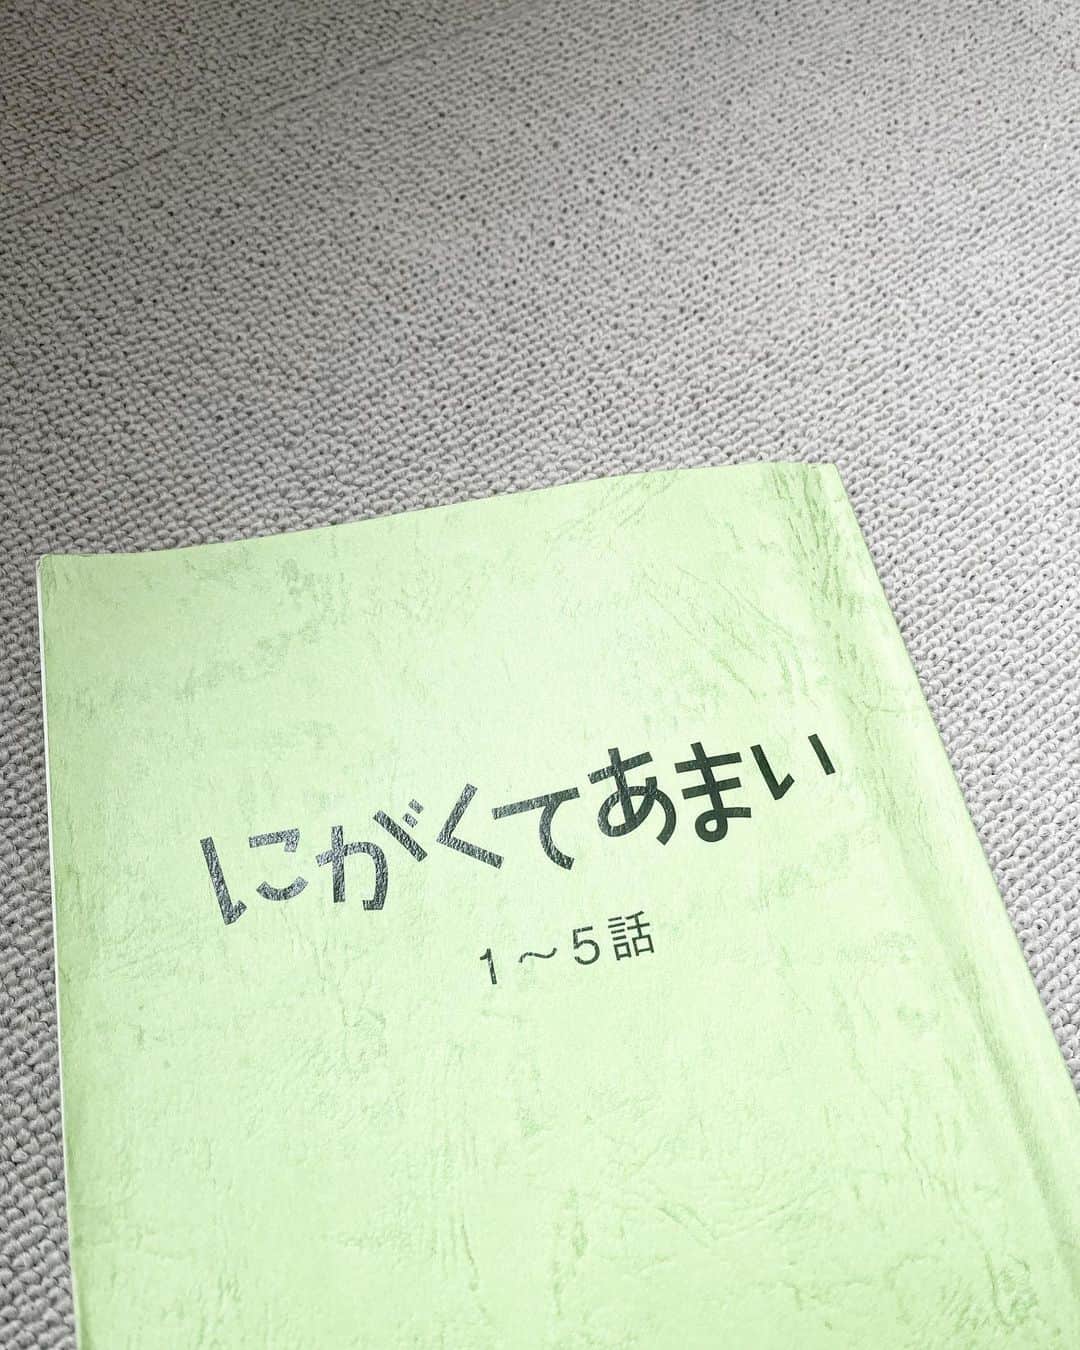 にがくてあまい
1～5話